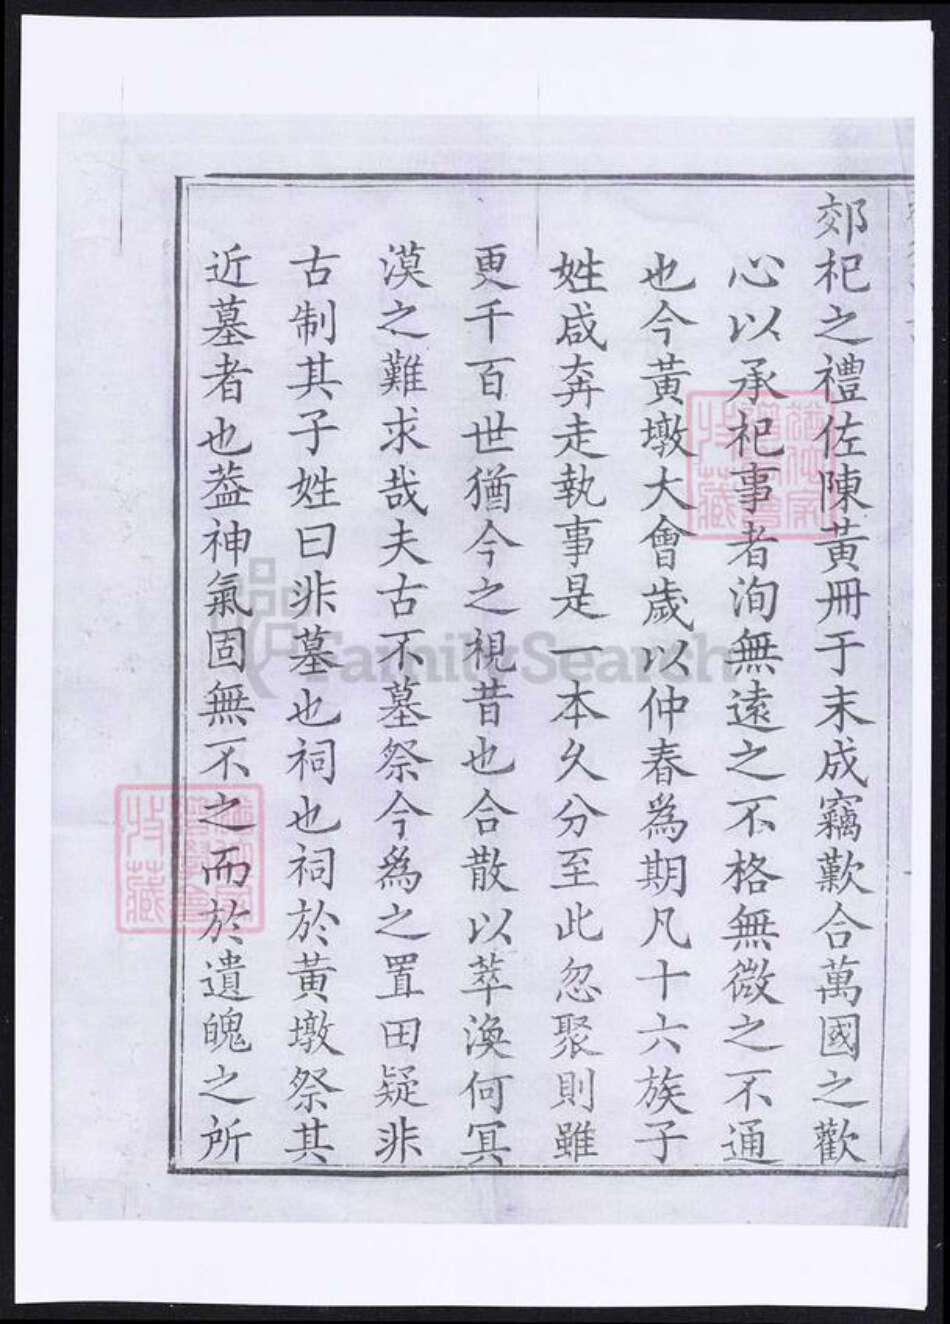 郊祀之禮佐陳黃冊于末成竊歎合萬國之歡
心以承祀事者洵無遠之不格無微之不通
也今黃墩大會歲以仲春為期凡十六族子
姓咸奔走執事是一本久分至此忽聚則雖
更千百世猶今之視昔也合散以萃渙何冥
漠之難求哉夫古不墓祭今為之置田疑非
古制其子姓曰非墓也祠也祠於黃墩祭其
近墓者也蓋神氣固無不之而於遺魄之所
FamilySearch
收藏
收藏